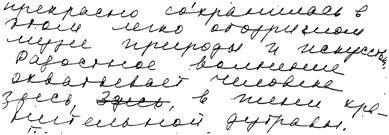 прекрасно сохранилась в
этом легко обозримом
музее природы и искусства.
Радостное волнение
охватывает человека
здесь, здесь, в тени хра-
нительной дубравы.